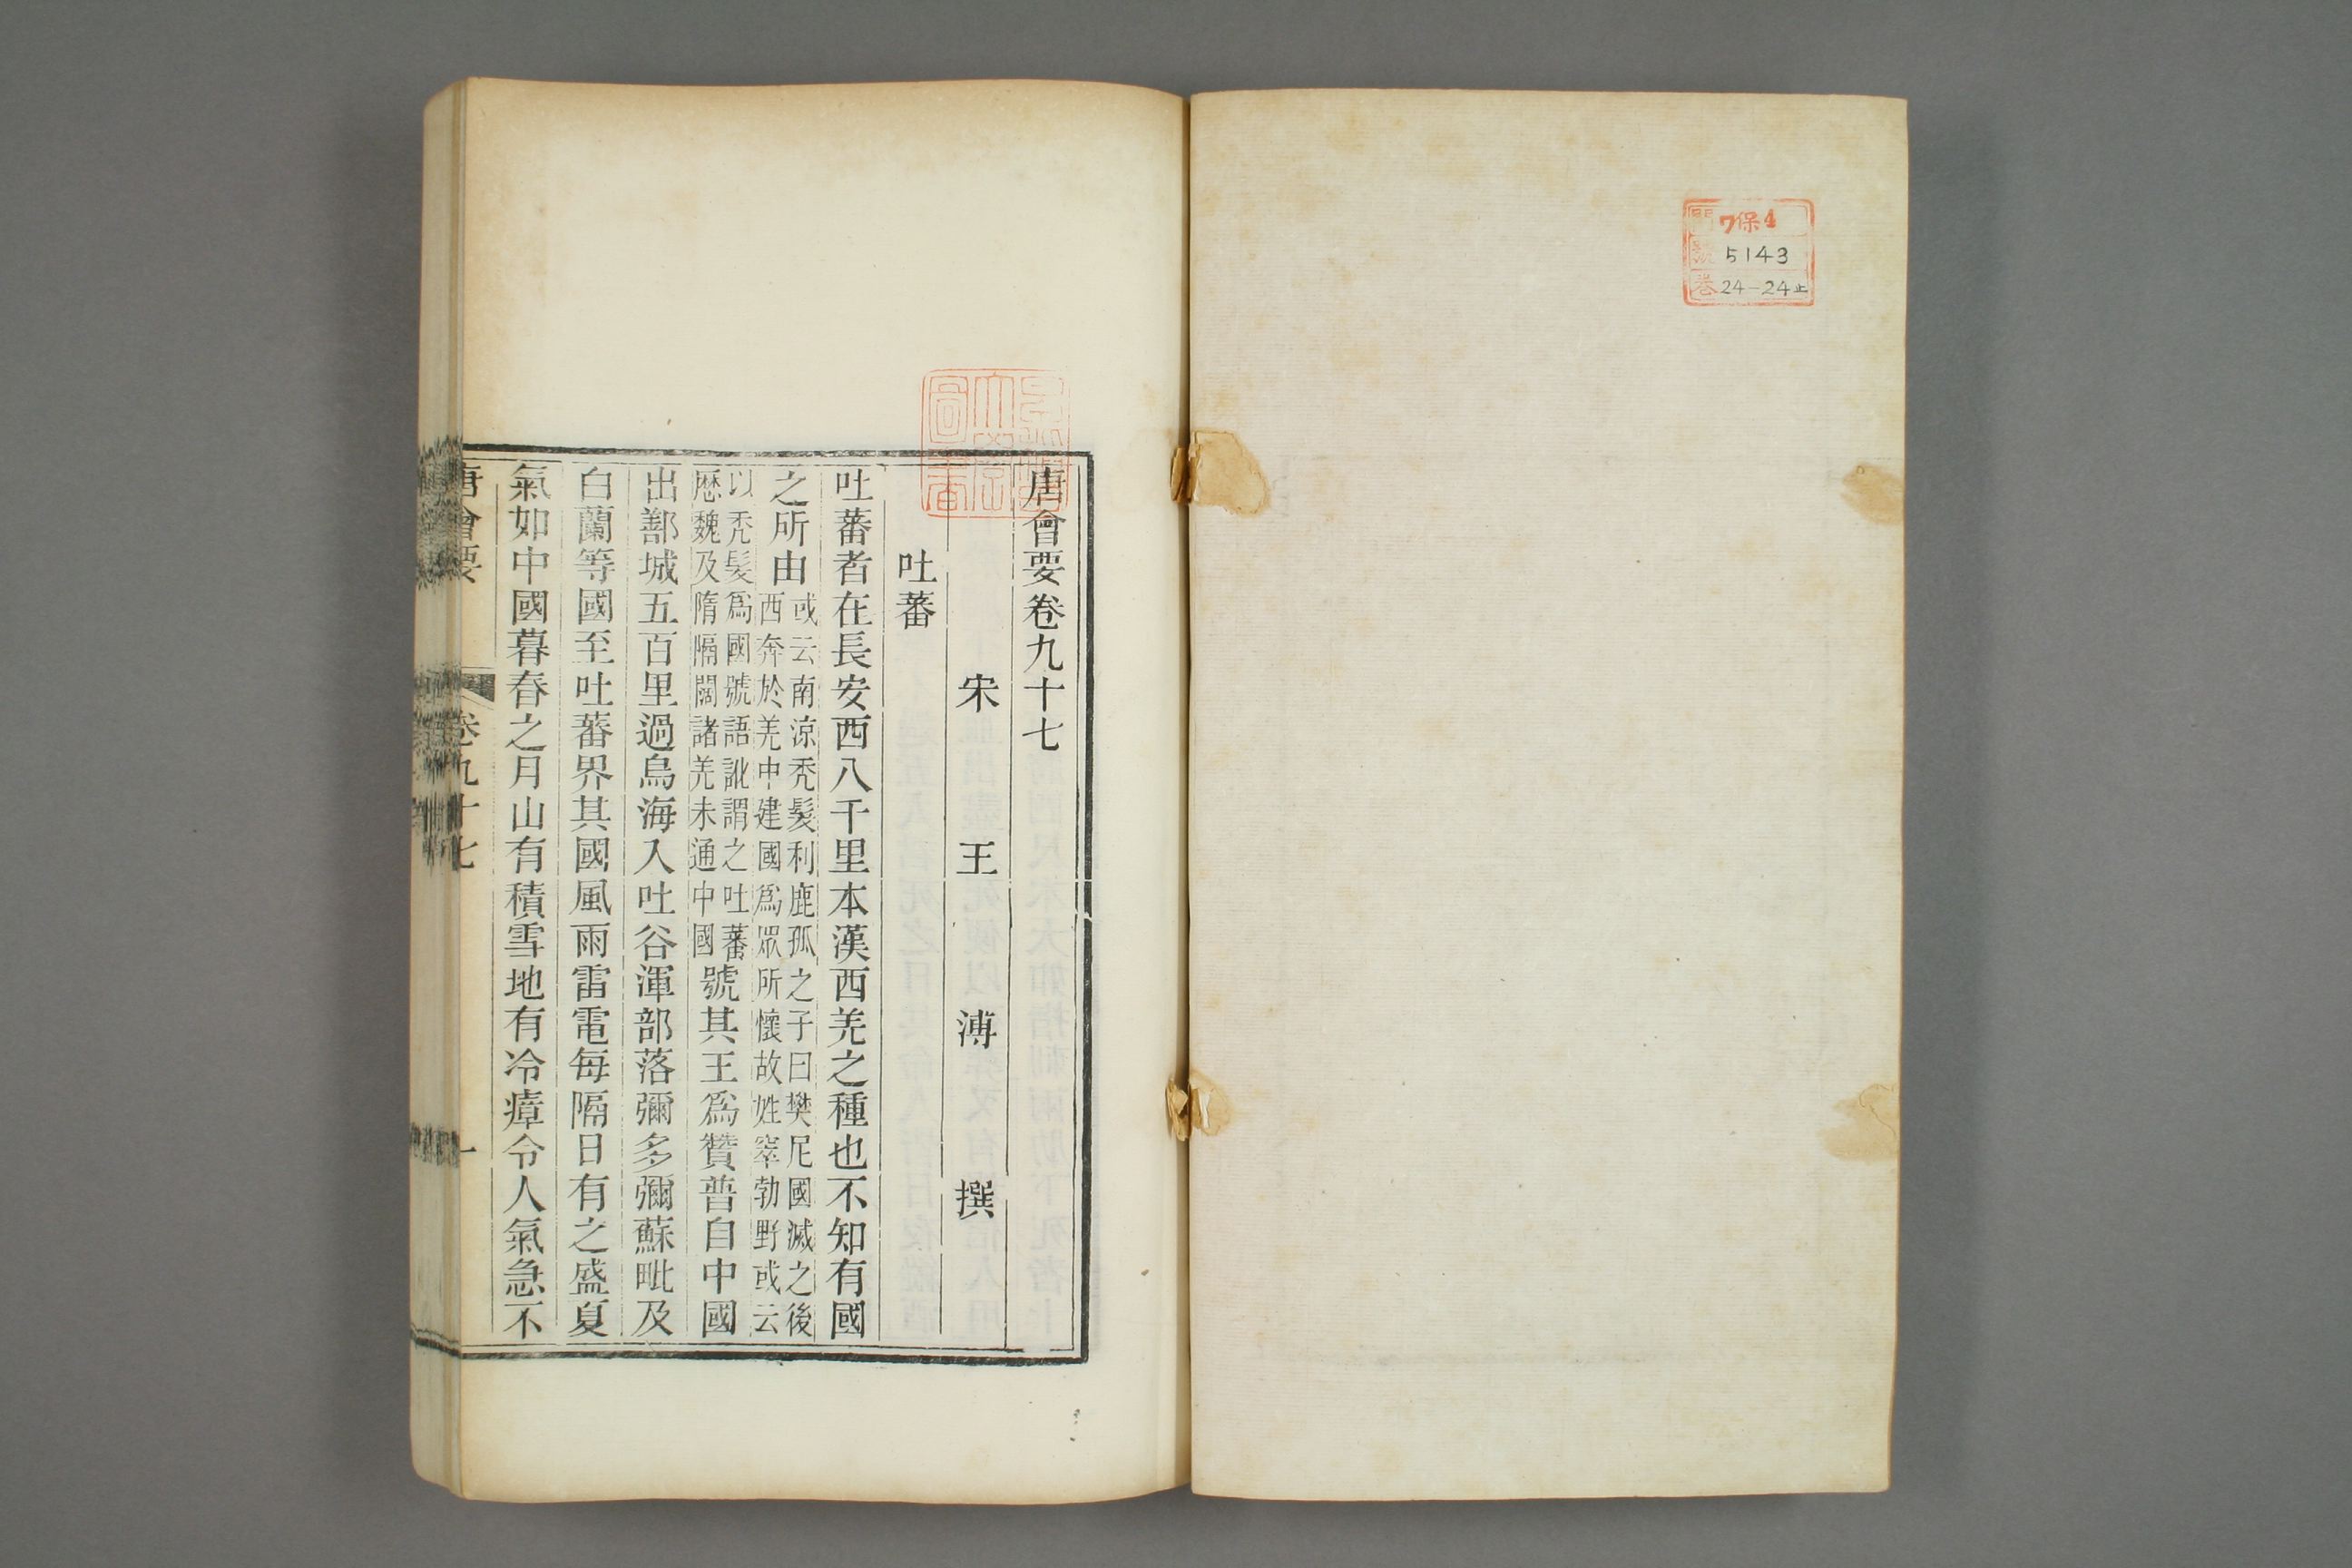 門 7保4
號 5143
卷 24-24止
唐會要卷九十七
宋 王 溥 撰
吐蕃
吐蕃者在長安西八千里本漢西羌之種也不知有國
之所由或云南涼秃髮利鹿孤之子曰樊尼國滅之後
西奔於羌中建國爲眾所懷故姓窣勃野或云
以秃髮爲國號語訛謂之吐蕃
歷魏及隋隔閡諸羌未通中國號其王爲贊普自中國
出鄯城五百里過烏海入吐谷渾部落彌多彌蘇毗及
白蘭等國至吐蕃界其國風雨雷電每隔日有之盛夏
氣如中國暮春之月山有積雪地有冷瘴令人氣急不
唐會要
卷九十七
一